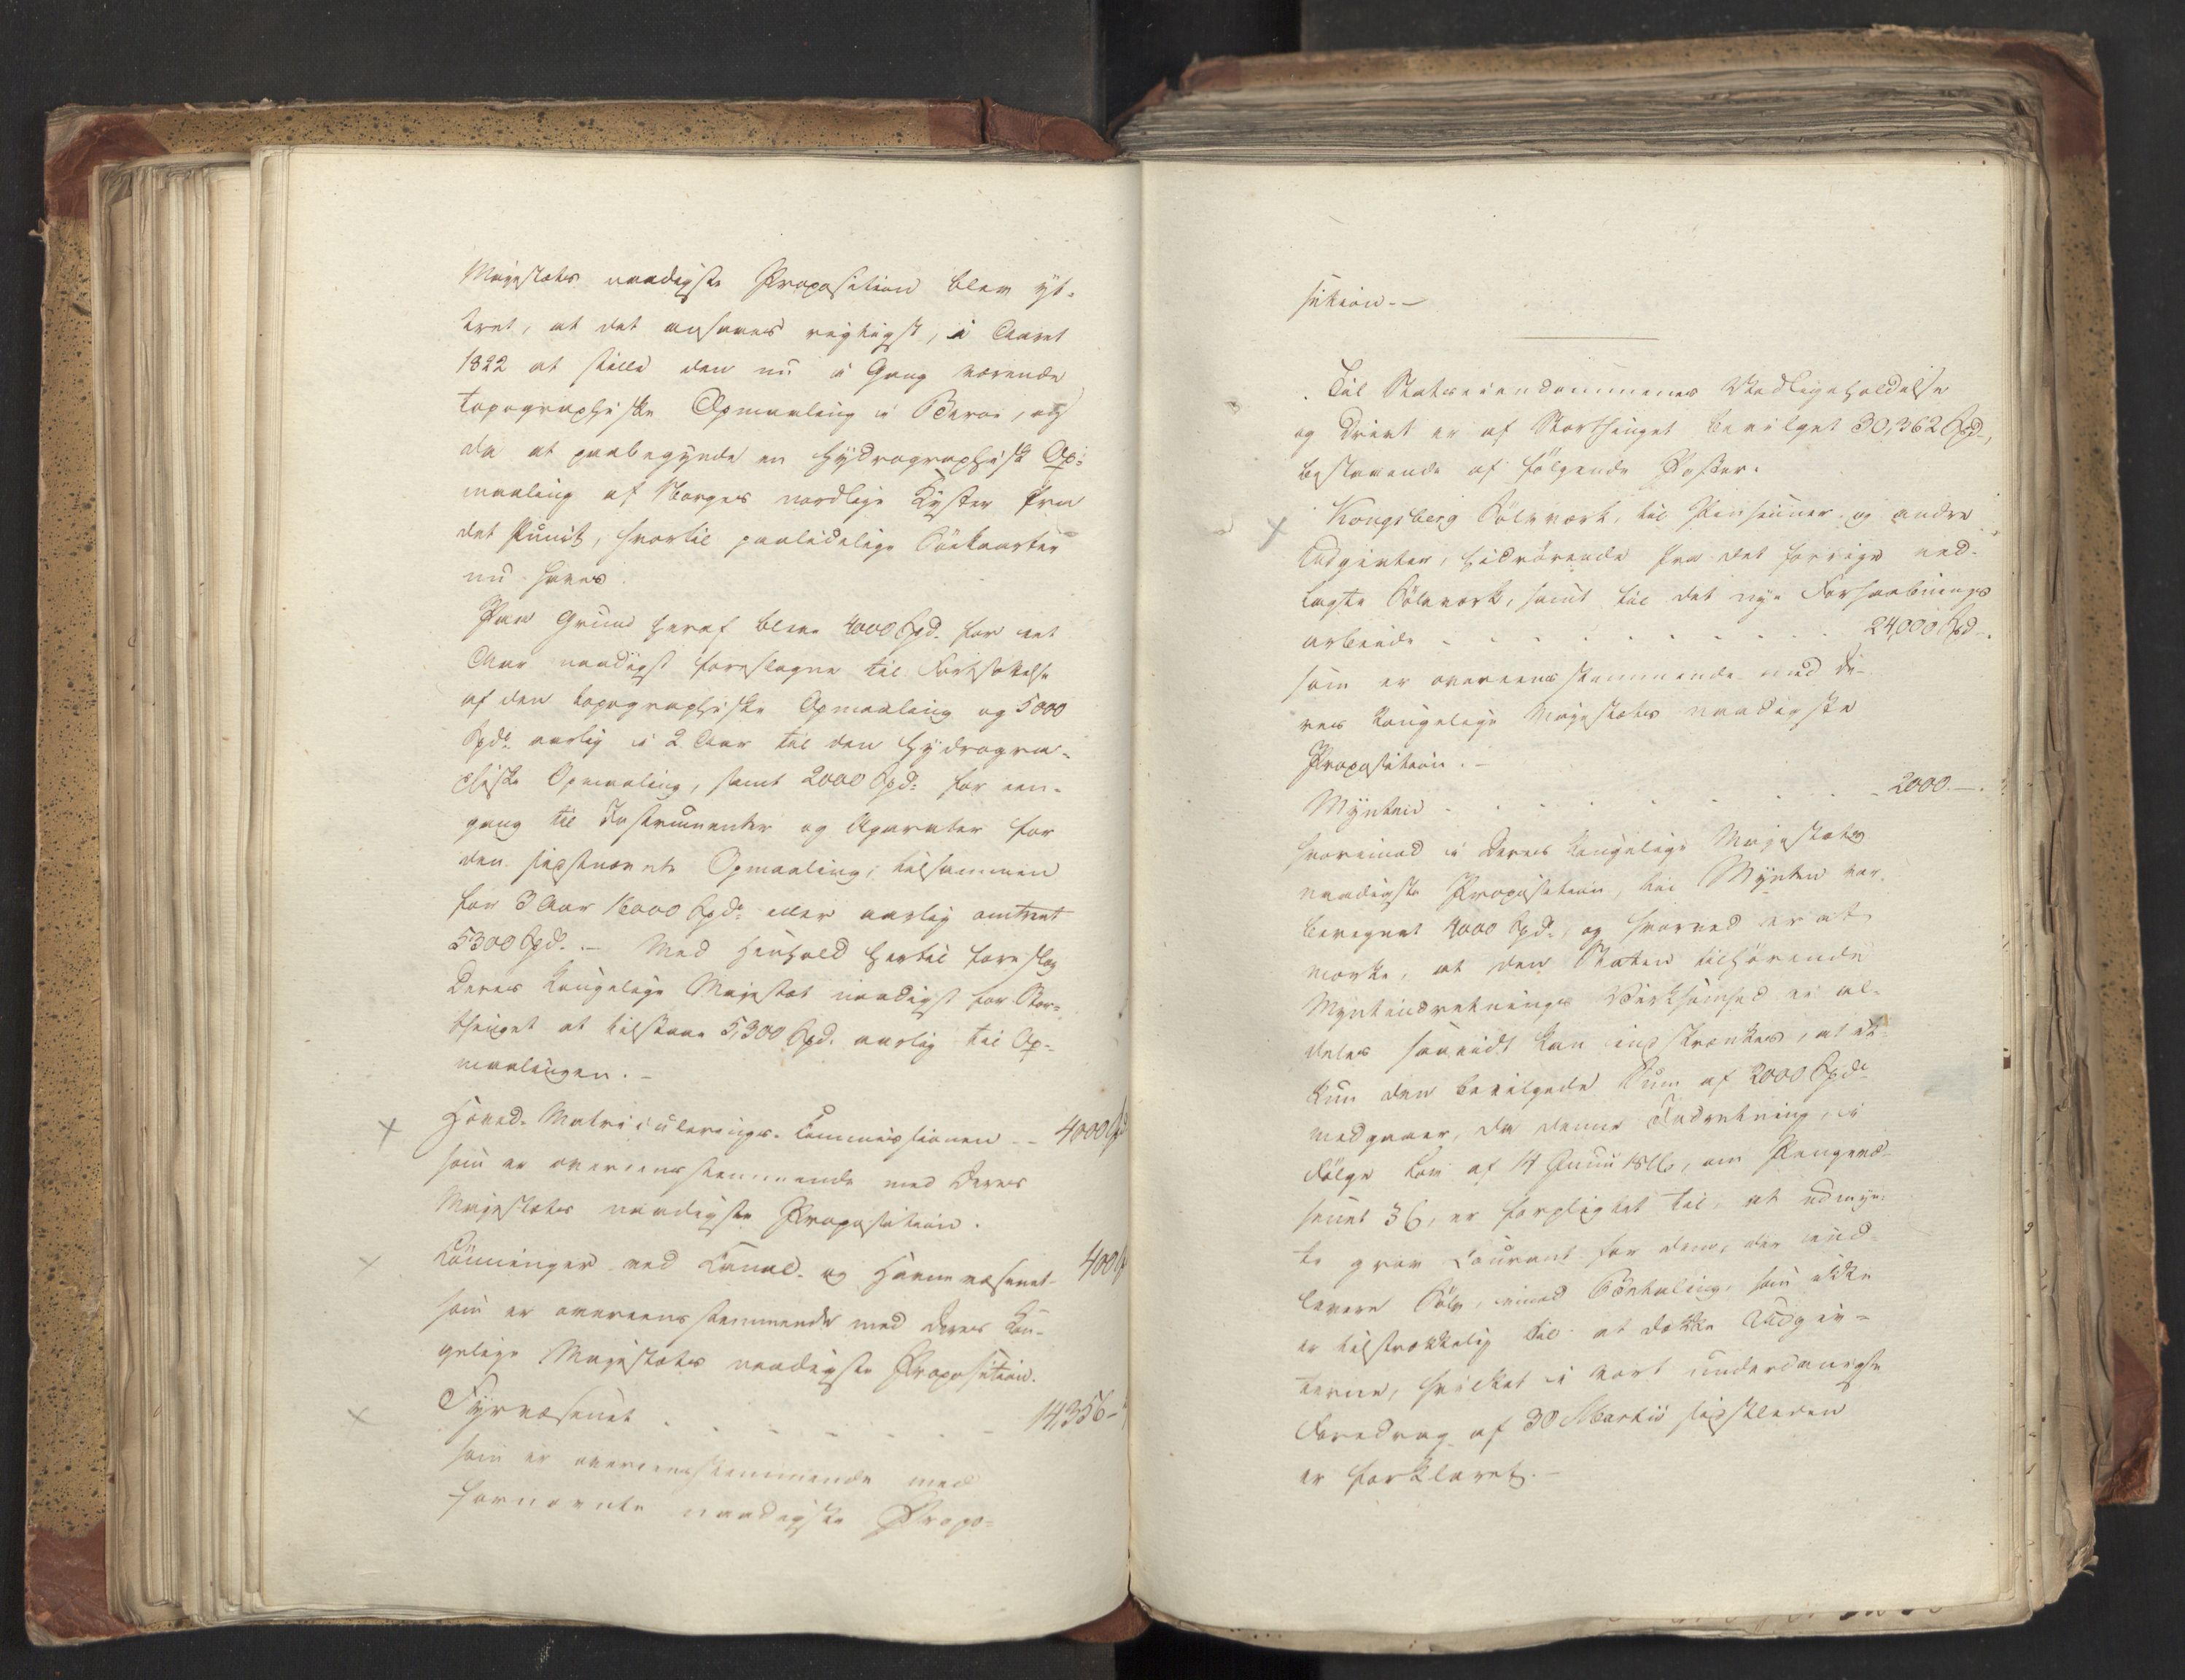 Majestæts naadigste Proposition blev yt-
tret, at det ansaaes rigtigst, i Aaret
1822 at stille den nu i Gang værende
topographiske Opmaaling i Bero, og
da at paabegynde en hydrographisk Op-
maaling af Norges nordlige Kyster fra
det Punct, hvortil paalidelige Söekaarter
nu haves.
Paa Grund heraf bleve 4000 Spd. for eet
Aar naadigst foreslagne til Fortsættelse
af den topographiske Opmaaling og 5000
Spd. aarlig i 2 Aar til den hydrogra-
phiske Opmaaling, samt 2000 Spd: for een-
gang til Instrumenter og Aparater for
den sidstnævnte Opmaaling; tilsammen
for 3 Aar 16000 Spd: eller aarlig omtrent
5300 Spd. — Med Henhold hertil foreslog
Deres Kongelige Majestæt naadigst for Stor-
thinget at tilstaae 5,300 Spd. aarlig til Op-
maalingen. —
Hoved-Matriculerings-Commissionen -- 4000 Spd
som er overeensstemmende med Deres
Majestæts naadigste Proposition.
Lönninger ved Canal- og Havnevæsenet- 400
som er overeensstemmende med Deres Kon-
gelige Majestæts naadigste Proposition.
Fyrvæsenet . - - - - - - 14356 -
som er overeensstemmende med
fornævnte naadigste Propo-
sition. —
Til Statseiendommenes Vedligeholdelse
og Drivt er af Storthinget bevilget 30,362 Spd.,
bestaaende af fölgende Poster:
Kongsberg Sölvværk, til Pensioner og andre
Udgivter, hidrörende fra det forrige ned-
lagte Sölvværk, samt til det nye Forhaabnings
arbeide - - - - - - - - - 24,000 Spd.
som er overeensstemmende med De-
res Kongelige Majestæts naadigste
Proposition. —
Mynten - - - - - - - - 2000 —.
hvorimod i Deres Kongelige Majestæts
naadigste Proposition, til Mynten var
beregnet 4000 Spd., og hvorved er at
mærke, at den Staten tilhörende
Myntindretnings Virksomhed ei al-
deles saavidt kan indskrænkes, at
kun den bevilgede Sum af 2000 Spd.
medgaaer, da denne Indretning, i
Fölge Lov af 14 Junii 1816, om Pengevæ-
senet § 6, er forpligtet til, at udmyn-
te grov Courant for dem, der ind-
levere Sölv, imod Betaling, som ikke
er tilstrækkelig til at dække Udgiv-
terne, hvilket i vort underdanigste
Foredrag af 30 Martii sidstleden
er forklaret. —